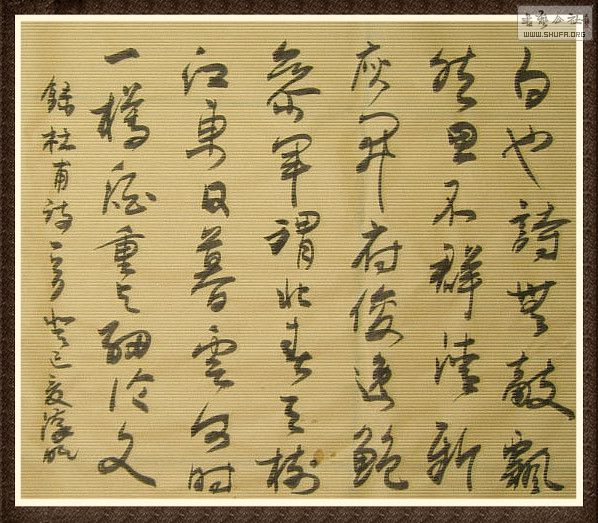 白也詩無敵飄
然思不群清新
庾開府俊逸鮑
參軍謂北春天樹
江東日暮雲何時
一樽酒重与細論文
錄杜甫詩一首癸巳夏
书艺公社
WWW.SHUFA.ORG